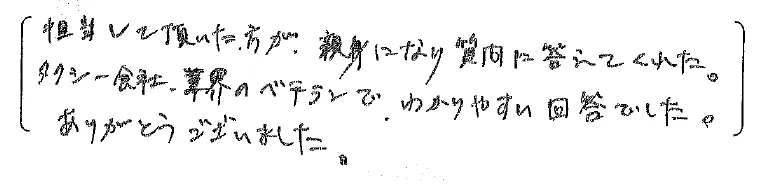 担当して頂いた方が、親身になり質問に答えてくれた。
タクシー会社、業界のベテランで、わかりやすい回答でした。
ありがとうございました。